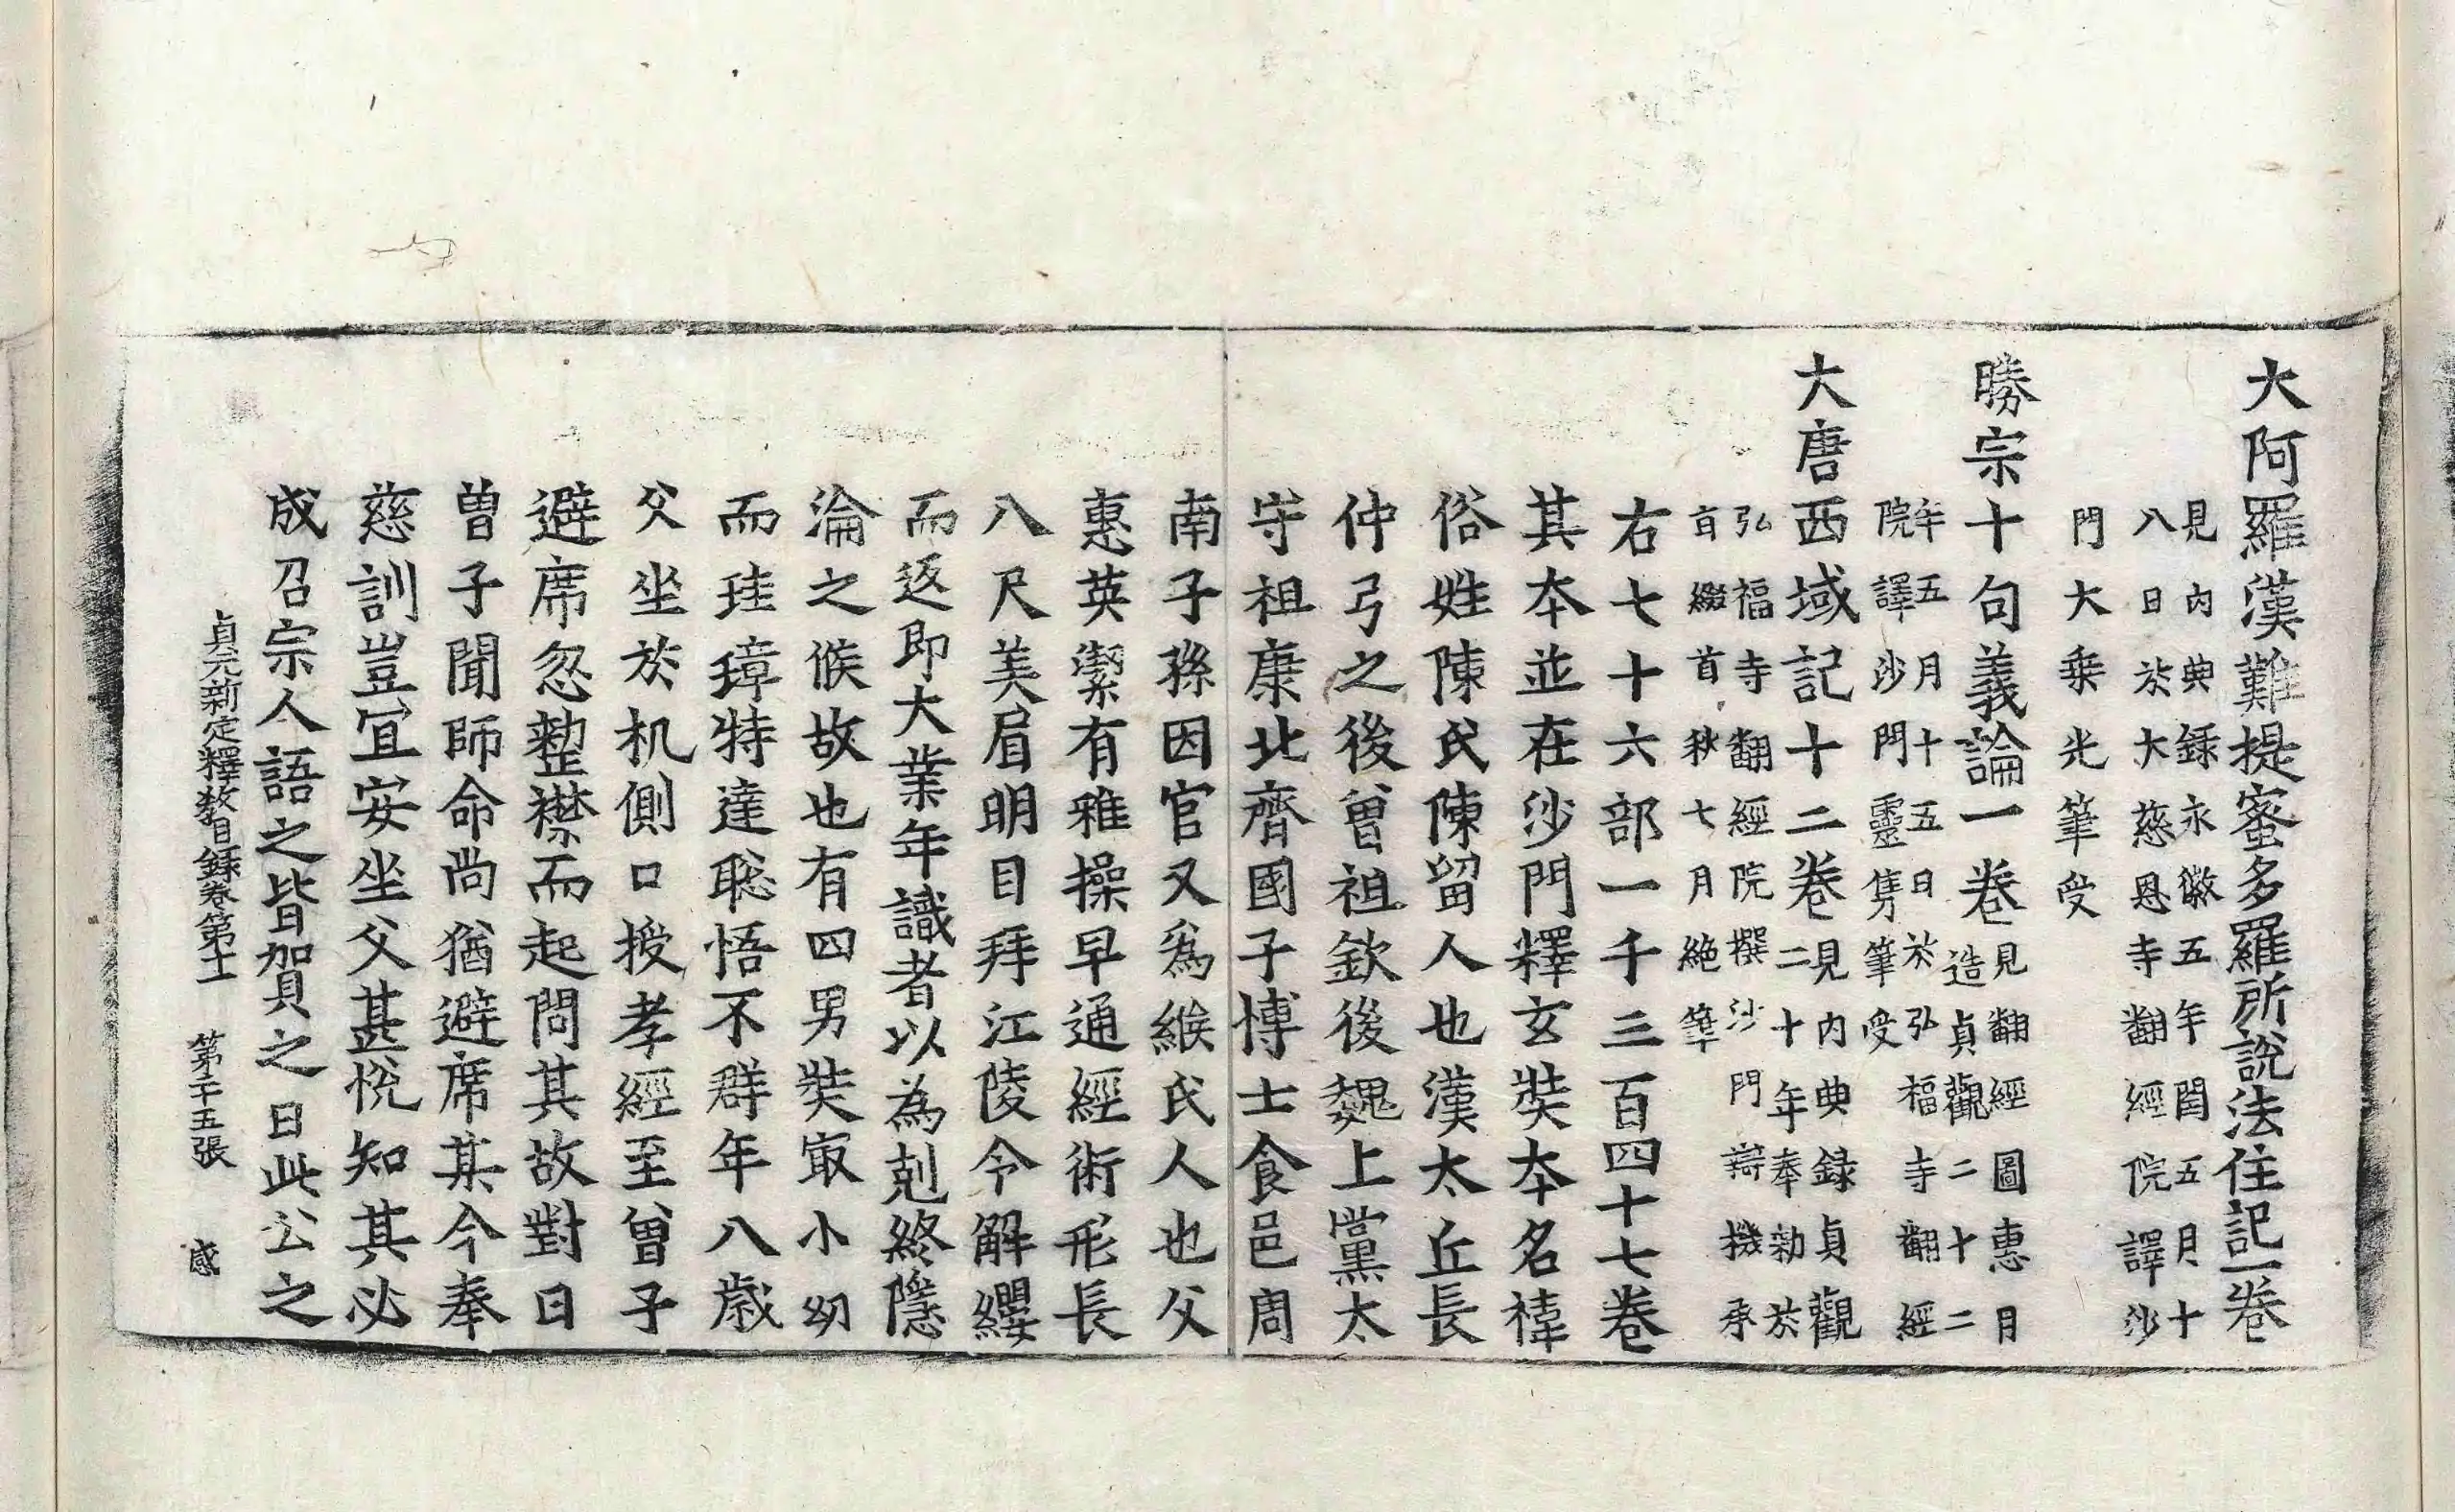 大阿羅漢難提蜜多羅所說法住記一卷
見內典錄永徽五年閏五月十
八日於大慈恩寺翻經院譯沙
門大乗光筆受
勝宗十句義論一卷
見翻經圖惠月
造貞觀二十二
年五月十五日於弘福寺翻經
院譯沙門靈雋筆受
大唐西域記十二卷
見內典録貞觀
二十年奉勑於
弘福寺翻經院撰沙門辯機承
旨綴首秋七月絶筆
右七十六部一千三百四十七卷
其本並在沙門釋玄奘本名禕
俗姓陳氏陳留人也漢太丘長
仲弓之後曾祖欽後魏上黨太
守祖康北齊國子博士食邑周
南子孫因官又爲緱氏人也父
惠英潔有雅操早通經術形長
八尺美眉明目拜江陵令解纓
而返即大業年識者以為剋終隱
淪之候故也有四男奘㝡小㓜
而珪璋特達聡悟不群年八歲
父坐於机側口授孝經至曾子
避席忽整襟而起問其故對曰
曾子聞師命尚猶避席某今奉
慈訓豈冝安坐父甚恱知其必
成召宗人語之皆賀之曰此公之
貞元新定釋教目録卷第十一 第二十五張 感